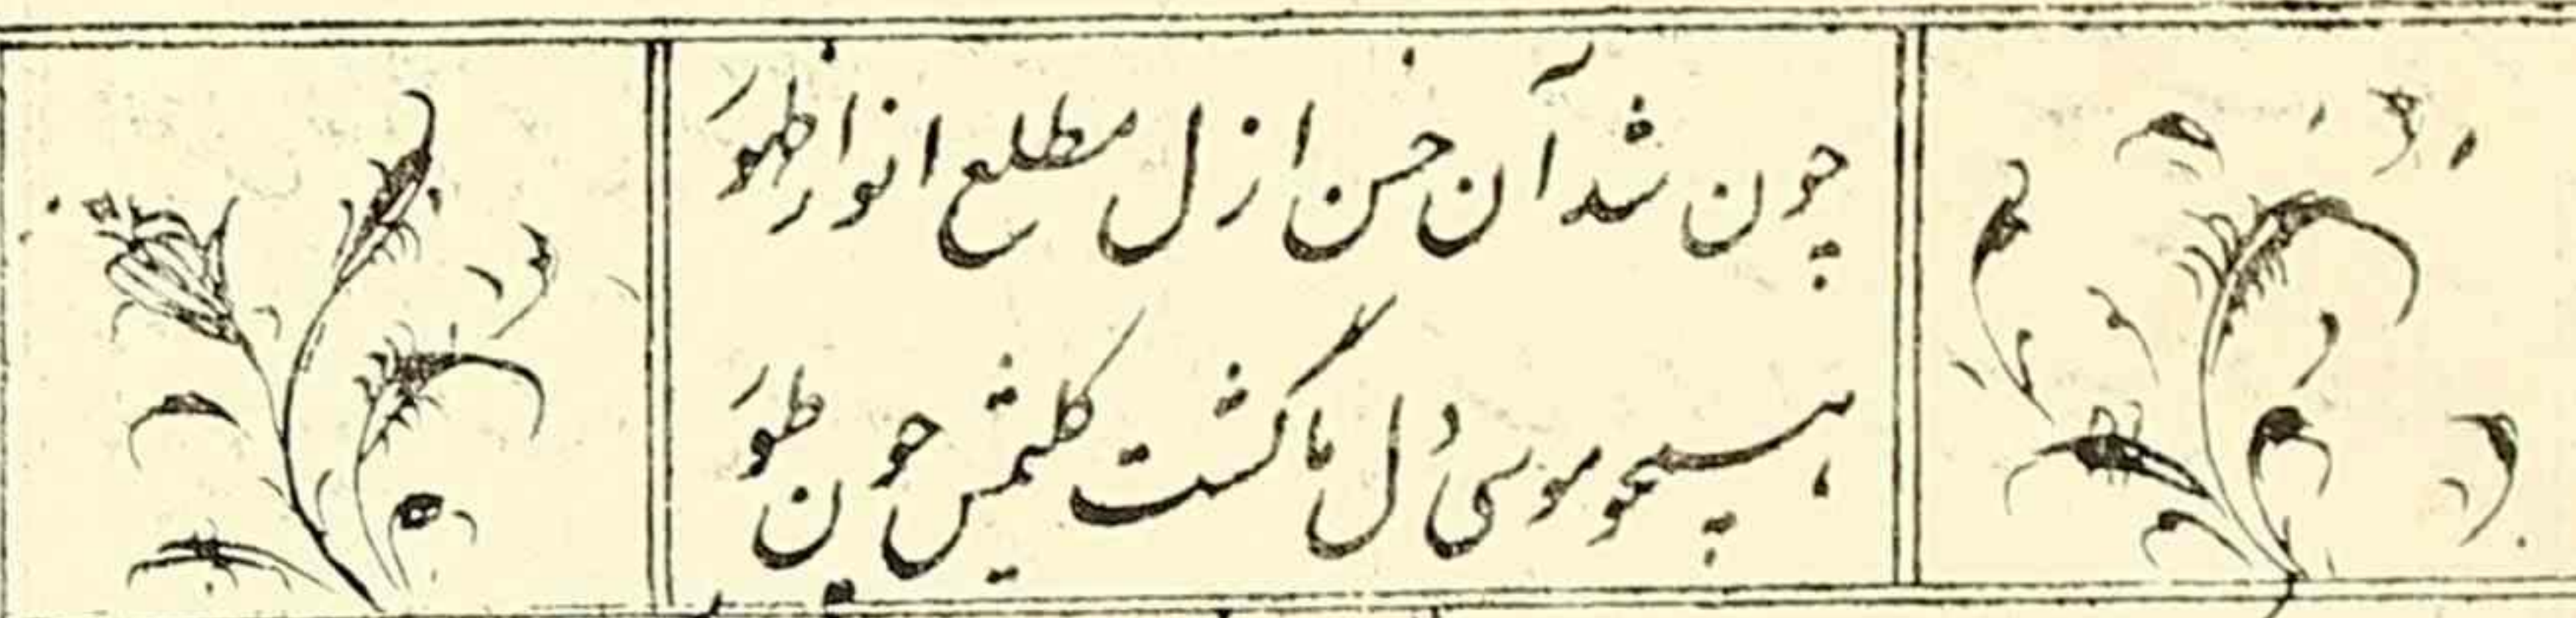 چون شد آن حسن ازل مطلع انوار ظهور
همچو موسی دل ما گشت کلیمش چون طور